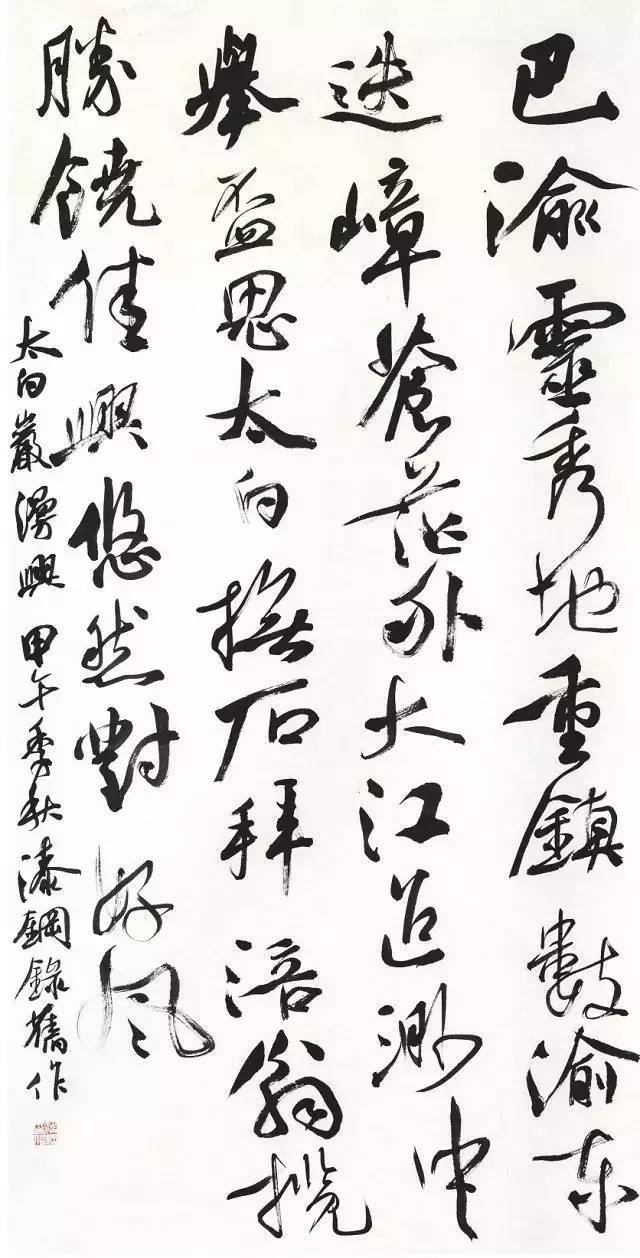 巴渝靈秀地重鎮數渝东
迭嶂蒼茫外大江迢渺中
舉盃思太白撫石拜涪翁攬
勝饒佳興悠然對好风
太白巖漫興甲午季秋漆鋼錄舊作